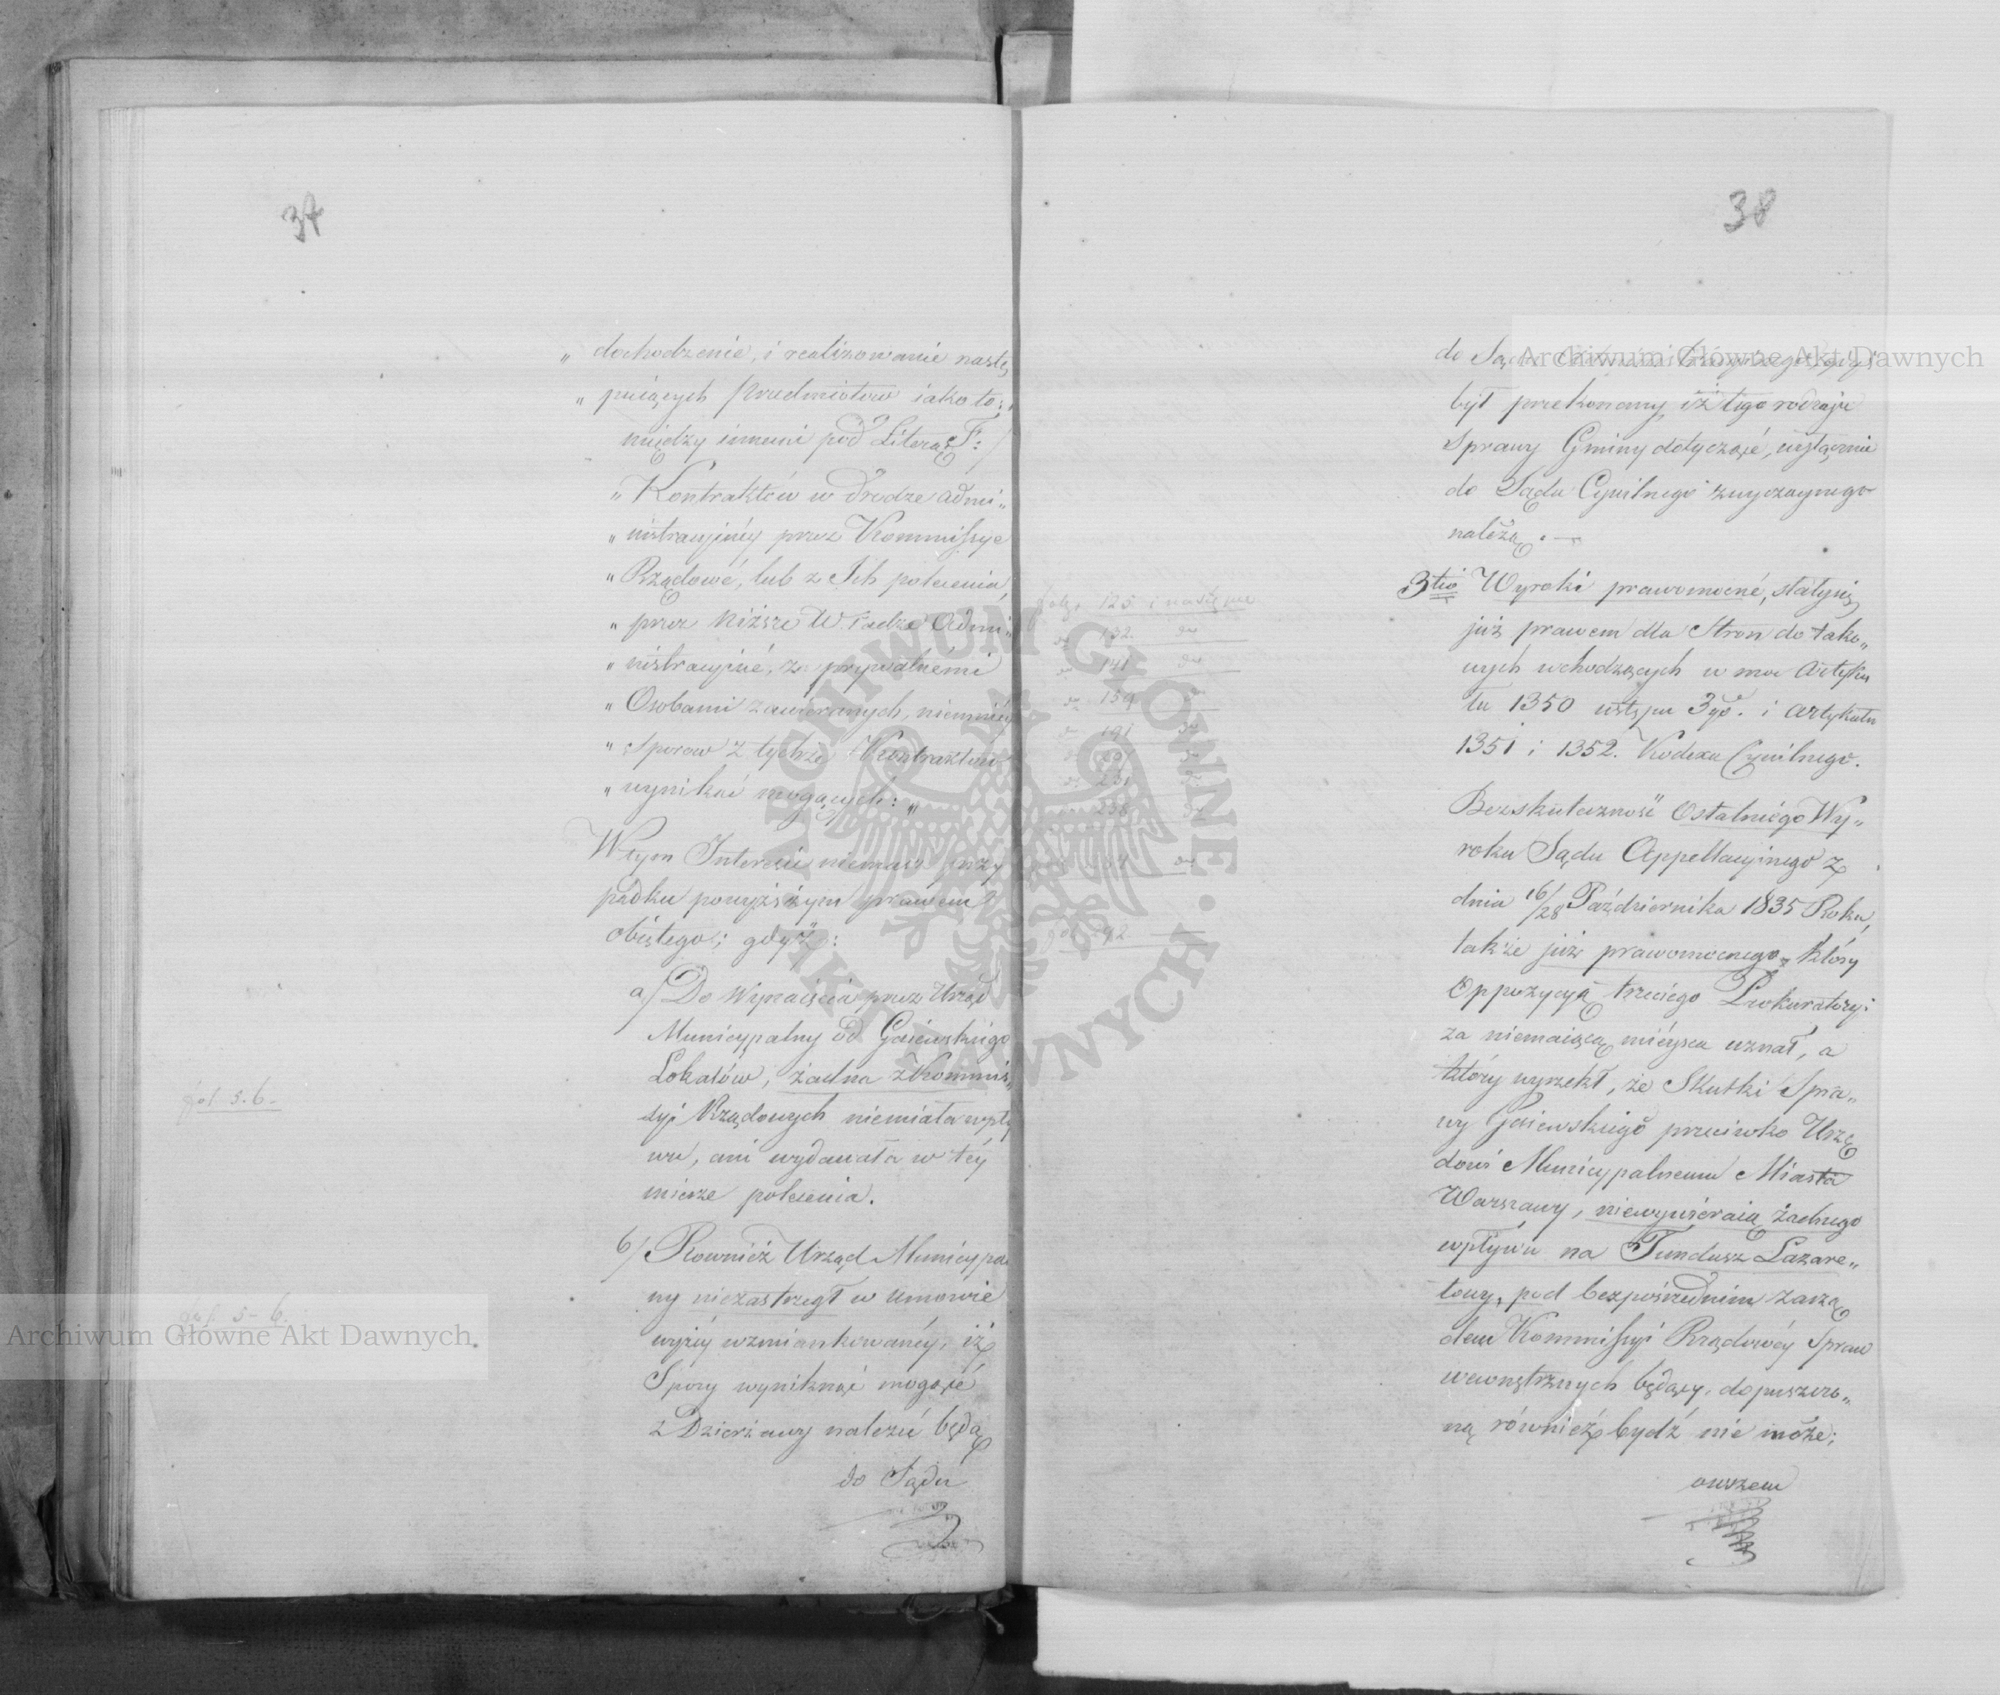 37
„ dochodzenie, i realizowanie nastę„
„ puiących Przedmiotów iako to:„
między innemi pod Literą F:/
„ Kontraktów w drodze admi„
„ nistracyinéy przez Kommissye
„ Rządowé, lub z Ich polecenia,
„ przez niższe Władze Admi„
„ nistracyiné, z prywatnemi
„ Osobami zawieranych, niemniéy
„ Sporów z tychże Kontraktów
„ wynikać mogących: „
W tym Interesie niemasz przy
padku powyższym prawem
obiętego; gdyż:
a/ Do Wynaięcia przez Urząd
Municypalny od Gaiewskiégo
Lokalów, żadna z Kommis„
syi Rządowych niemiała wpły
wu, ani wydawała w téy
mierze polecenia.
fol 5. 6.
b/ Rownież Urząd Municypal
ny niezastrzegł w umowie
wyżéy wzmiankowanéy, iż
Spory wyniknąć mogącé
z Dzierżawy należeć będą
do Sądu
fol. 5-6.
Archiwum Główne Akt Dawnych.
38
do Sądu
Archiwum Główne Akt Dawnych
był przekonany, iż tego rodzaju
Sprawy Gminy dotyczącé, wyłącznie
do Sądu Cywilnego zwyczaynego
należą. —
3tio Wyroki prawomocné, stały się
już prawem dla Stron do tako„
wych wchodzących w moc Artyku
łu 1350 ustępu 3go. i Artykułu
1351 i 1352. Kodexu Cywilnego.
Bezskuteczność Ostatniégo Wy„
roku Sądu Appellacyinego z
dnia 16/28 Października 1835 Roku,
także już prawomocnego, który
Oppozycyą trzeciego Prokuratoryi
za niemaiącą mieysca uznał, a
który wyrzekł, że Skutki Spra„
wy Gaiewskiégo przeciwko Urzę
dowi Municypalnemu Miasta
Warszawy, niewywieraią żadnego
wpływu na Fundusz Lazare„
towy, pod bezpośrednim zarzą
dem Kommissyi Rządowéy Spraw
wewnętrznych będący, dopuszczo„
ną również bydź nie może;
owszem
fol. 125 i następne
do 132. do
do 141 do
do 159 do
do 191 do
do 231 do
ARCHIWUM GŁÓWNE AKT DAWNYCH